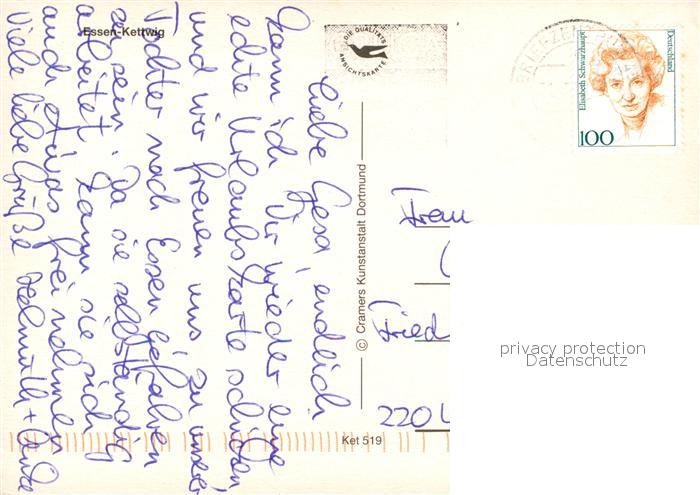 Essen-Kettwig
DIE QUALITÄTS
ANSICHTSKARTE
Deutschland
Elisabeth Schwarzhaupt
100
Liebe Gesa, endlich
kann ich Dir wieder eine
echte Urlaubskarte schicken
und wir freuen uns zu unserer
Tochter nach Essen gefahren
zu sein. Da sie selbständig
arbeitet, kann sie sich
auch etwas frei nehmen.
Viele liebe Grüße Helmuth +
© Cramers Kunstanstalt Dortmund
Frau
Fried
220
Ket 519
privacy protection
Datenschutz